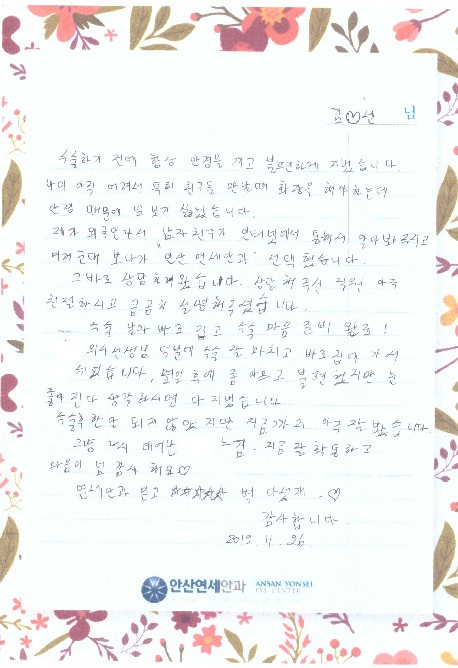 김♡선 님
수술하기 전에 항상 안경을 끼고 불편하게 지냈습니다.
나이 아직 어려서 특히 친구들 만날때 화장은 해야하는데
안경 때문에 넘 보기 싫었습니다.
제가 외국인라서 남자친구가 인터넷에서 통해서 알아봐주시고
여러군데 보다가 "안산 연세안과" 선택했습니다.
그 바로 상담하러 왔습니다. 상담 해주신 직원 아주
친절하시고 꼼꼼히 설명해주셨습니다.
수술 날짜 바로 잡고 수술 마음 준비 완료!
의사선생님 덕분에 수술 잘 마치고 바로 집에 가서
쉬었습니다. 몇일 후에 좀 아프고 불편했지만 눈
좋아진다 생각하시면 다 지냈습니다.
수술후 한달 되지 않았지만 지금까지 아주 잘 보습니다.
그냥 다시 태어난 느낌. 지금 잘 활동하고
마음이 넘 감사해요♡
연세안과 믿고 ☆☆☆☆☆ 별 다섯개. ♡
감사합니다.
2019. 11. 26
안산연세안과 ANSAN YONSEI
EYE CENTER